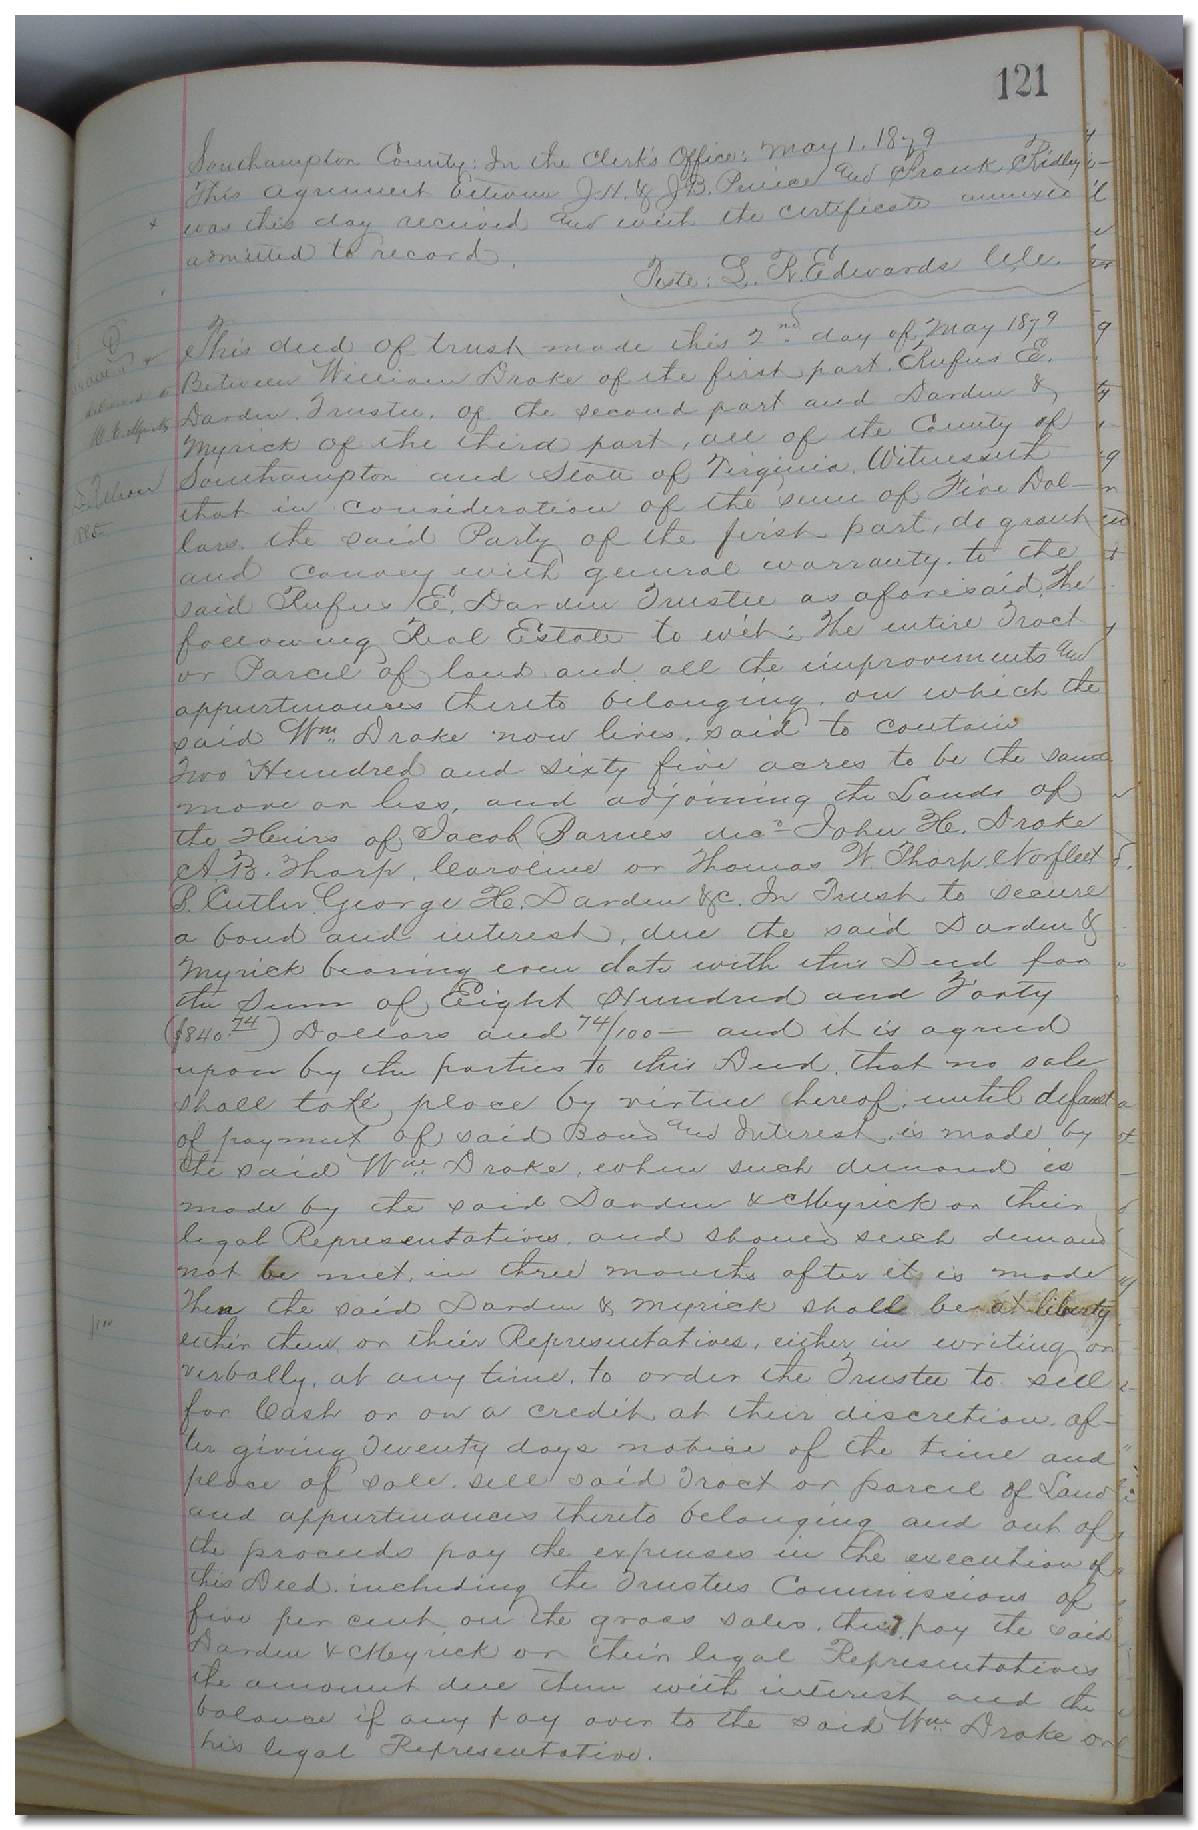 121
Southampton County: In the Clerk's Office: May 1. 1879
This agreement between J. H. & J. B. Prince and Frank Ridley
was this day received and with the certificate annexed
admitted to record.
Teste: L. R. Edwards C.C.
This deed of trust made this 2nd day of May 1879
Between William Drake of the first part. Rufus E.
Darden. Trustee. of the second part and Darden &
Myrick of the third part, all of the County of
Southampton and State of Virginia. Witnesseth
that in consideration of the sum of Five Dol-
lars. the said Party of the first part, do grant
and convey with general warranty. to the
said Rufus E. Darden Trustee as aforesaid, The
following Real Estate to wit: The entire Tract
or Parcel of land and all the improvements and
appurtenances thereto belonging. on which the
said Wm. Drake now lives. said to contain
Two Hundred and sixty five acres to be the same
more or less, and adjoining the Lands of
the Heirs of Jacob Barnes decd John H. Drake
A. B. Tharp, Caroline or Thomas W. Tharp. Norfleet
S. Cutler. George H. Darden &c. In Trust to secure
a bond and interest, due the said Darden &
Myrick bearing even date with this Deed for
the Sum of Eight Hundred and Forty
($840.74) Dollars and 74/100 — and it is agreed
upon by the parties to this Deed, that no sale
shall take place by virtue hereof, until default
of payment of said Bond and Interest, is made by
the said Wm. Drake, when such demand is
made by the said Darden & Myrick or their
legal Representatives. and should such demand
not be met, in three months after it is made
Then the said Darden & Myrick shall be at liberty
either them or their Representatives, either in writing or
verbally, at any time, to order the Trustee to sell
for Cash or on a credit, at their discretion. af-
ter giving Twenty days notice of the time and
place of sale. sell said Tract or parcel of Land
and appurtenances thereto belonging and out of
the proceeds pay the expenses in the execution of
this Deed. including the Trustees Commissions of
five per cent, on the gross sales, then pay the said
Darden & Myrick or their legal Representatives
the amount due them with interest, and the
balance if any pay over to the said Wm. Drake or
his legal Representative.